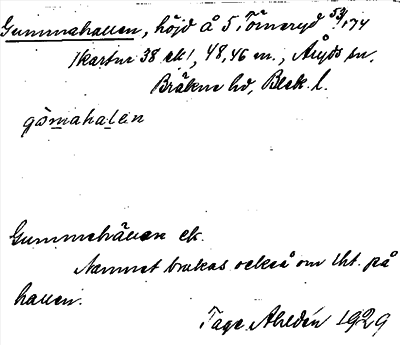 Gummahallen, höjd å 5, Tömeryd 53/174
/kartur 38 ek/, 48,46 m., Åryds sn,
Bräkne hd, Blek. l.
gömahalen
Gummehällen ek.
Namnet brukas också om lht. på
hallen.
Tage Ahldén 1929